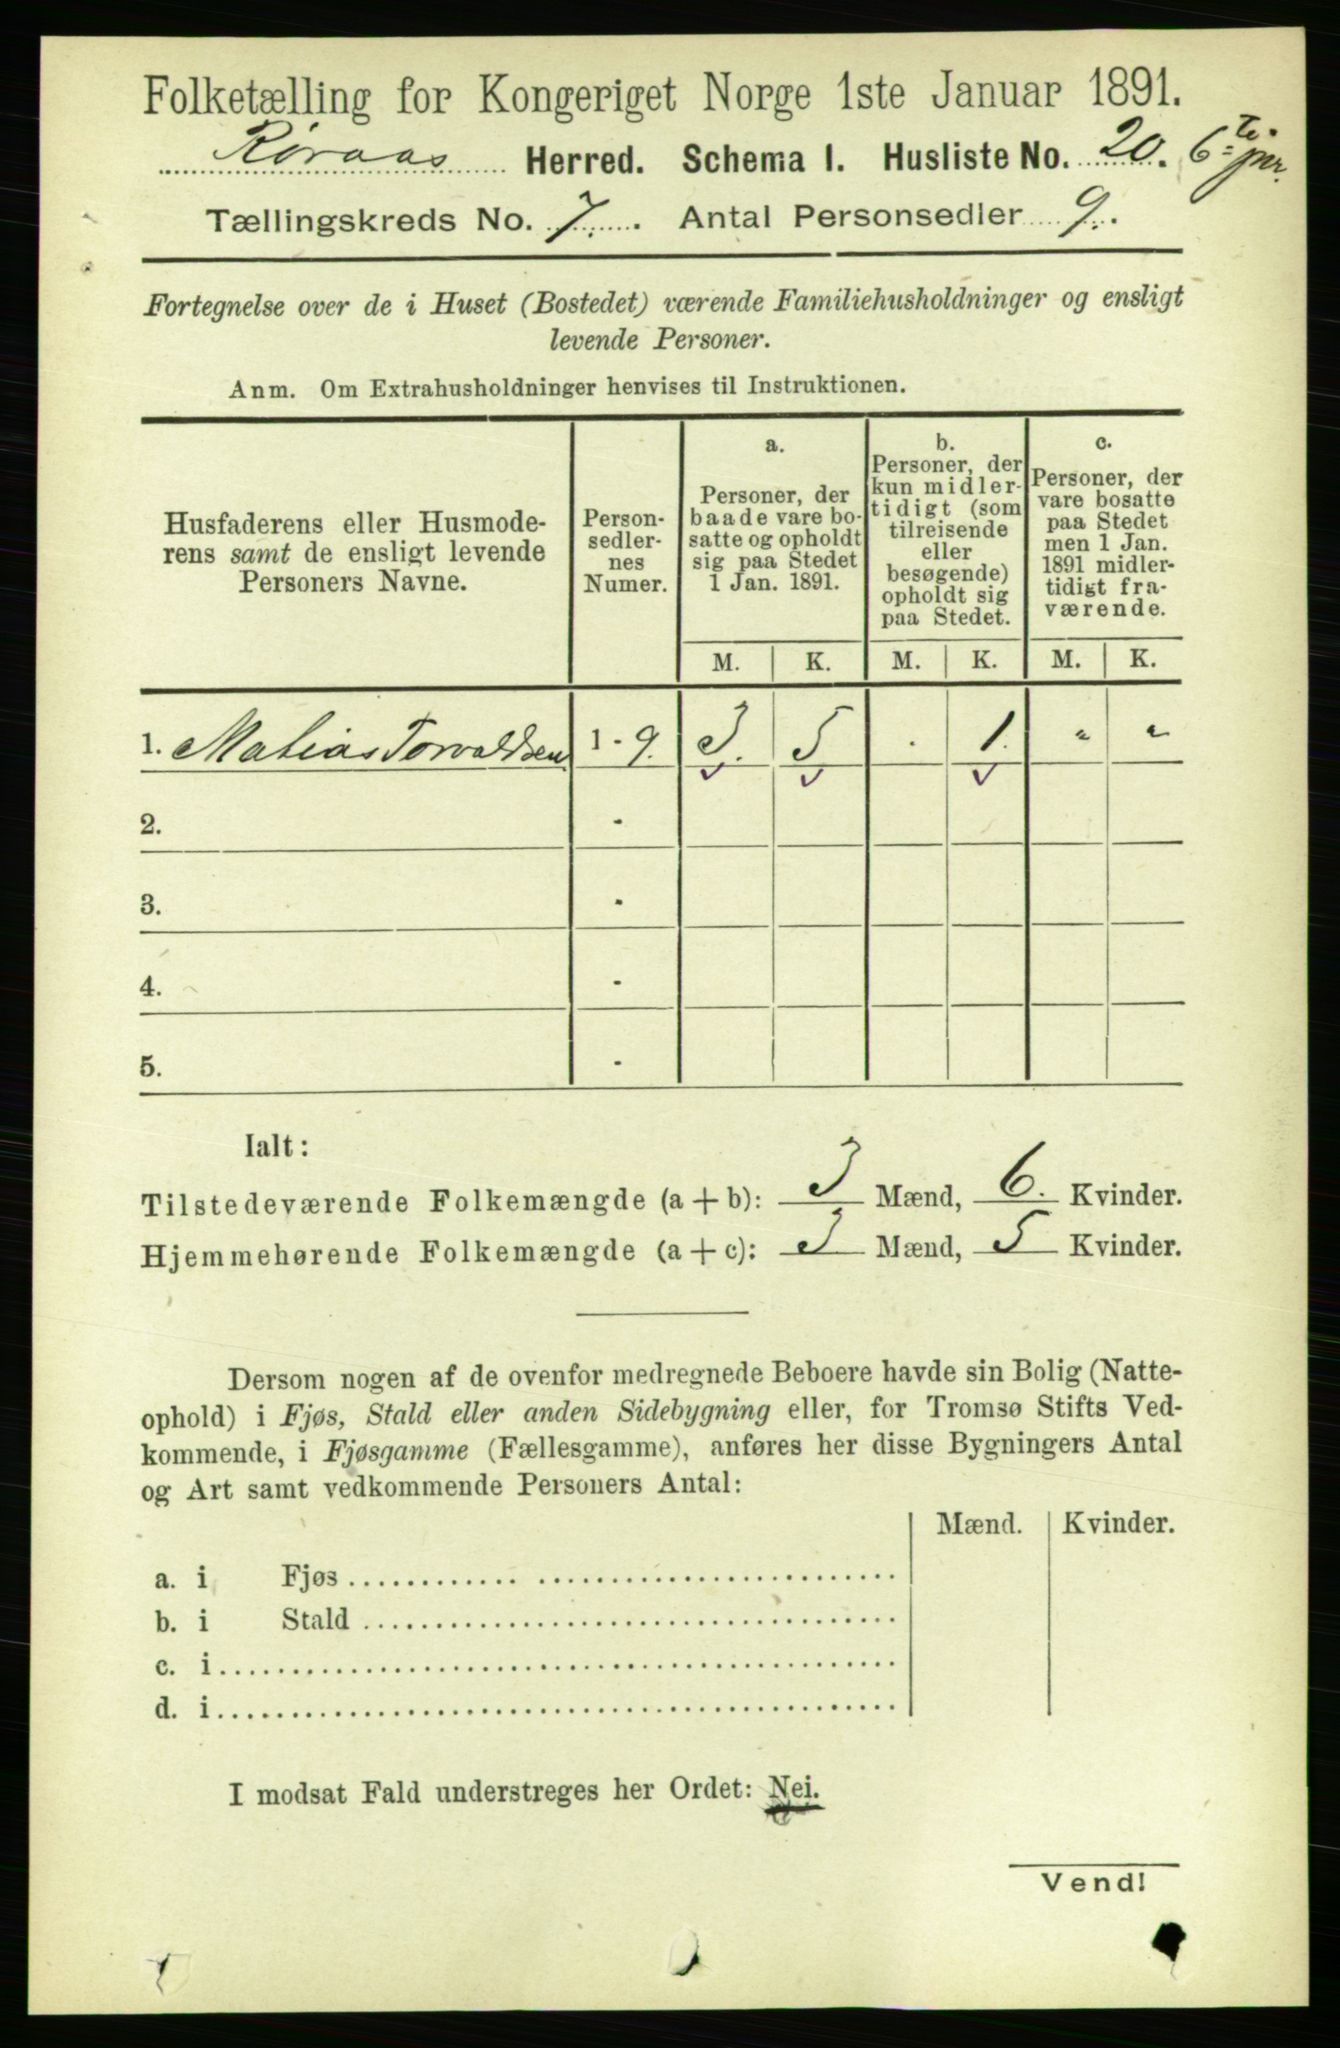 Folketælling for Kongeriget Norge 1ste Januar 1891.
Røraas Herred. Schema 1. Husliste No. 20. 6
Tællingskreds No. 7. Antal Personsedler 9.
Fortegnelse over de i Huset (Bostedet) værende Familiehusholdninger og ensligt
levende Personer.
Anm. Om Extrahusholdninger henvises til Instruktionen.
Husfaderens eller Husmode-
rens samt de ensligt levende
Personers Navne.
Person-
sedler-
nes
Numer.
a.
Personer, der
baade vare bo-
satte og opholdt
sig paa Stedet
1 Jan. 1891.
b.
Personer, der
kun midler-
tidigt (som
tilreisende
eller
besøgende)
opholdt sig
paa Stedet.
c.
Personer, der
vare bosatte
paa Stedet
men 1 Jan.
1891 midler-
tidigt fra-
værende.
M. K. M. K. M. K.
1. Matias Torvaldsen 1 - 9. 3. 5 . 1. " "
2. -
3. -
4. -
5. -
Ialt:
Tilstedeværende Folkemængde (a + b): 3 Mænd, 6. Kvinder.
Hjemmehørende Folkemængde (a + c): 3 Mænd, 5 Kvinder.
Dersom nogen af de ovenfor medregnede Beboere havde sin Bolig (Natte-
ophold) i Fjøs, Stald eller anden Sidebygning eller, for Tromsø Stifts Ved-
kommende, i Fjøsgamme (Fællesgamme), anføres her disse Bygningers Antal
og Art samt vedkommende Personers Antal:
Mænd. Kvinder.
a. i Fjøs
b. i Stald
c. i
d. i
I modsat Fald understreges her Ordet: Nei.
Vend!